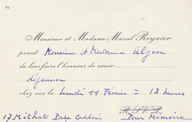 Monsieur et Madame Marcel Reynier
prient Monsieur et Madame Ulgen
de leur faire l'honneur de venir
déjeuner
chez eux le lundi 11 Février à 13 heures
R.S.V.P.
17 Mithat Paşa Caddesi